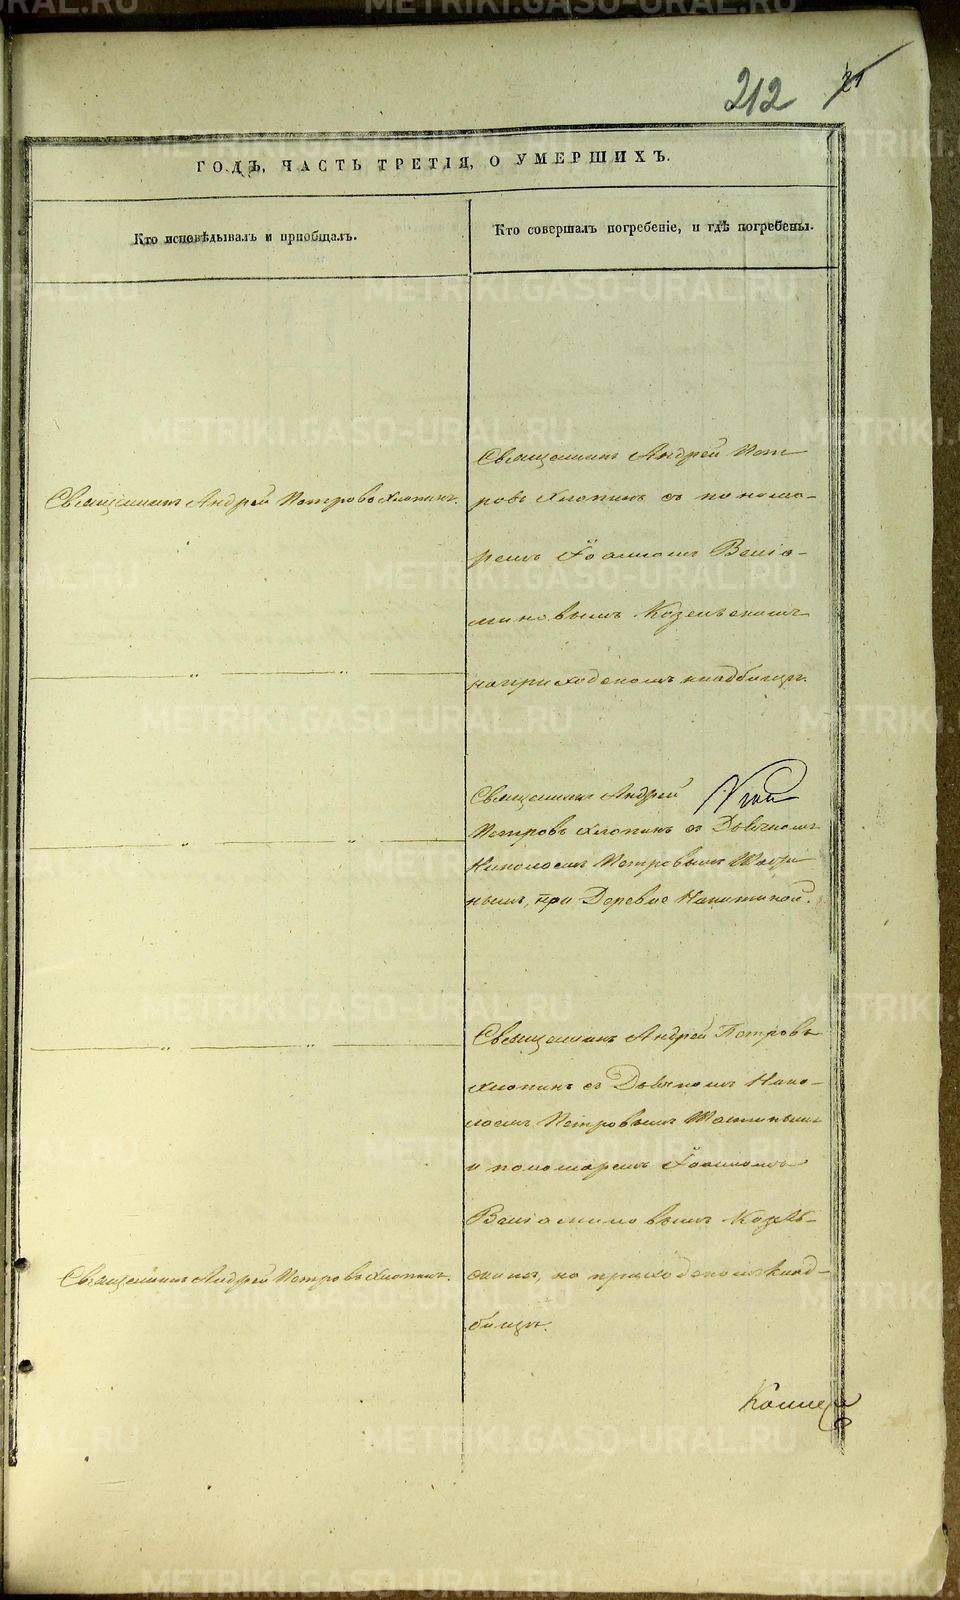 212
21
ГОДЪ, ЧАСТЬ ТРЕТІЯ, О УМЕРШИХЪ.
Кто исповѣдывалъ и пріобщалъ.
Кто совершалъ погребеніе, и гдѣ погребены.
Священникъ Андрей Петровъ Хлопинъ.
Священникъ Андрей Пет-
ровъ Хлопинъ съ понома-
ремъ Іоанномъ Веніа-
миновымъ Козельскимъ
на приходскомъ кладбищѣ.
Священникъ Андрей
Петровъ Хлопинъ съ Дьячкомъ
Николаемъ Петровымъ
нымъ, при Деревне Никитиной.
Священникъ Андрей Петровъ
Хлопинъ съ Дьячкомъ Нико-
лаемъ Петровымъ
и пономаремъ Іоанномъ
Веніаминовымъ Козель-
скимъ, на приходскомъ клад-
бищѣ.
Священникъ Андрей Петровъ Хлопинъ.
METRIKI.GASO-URAL.RU